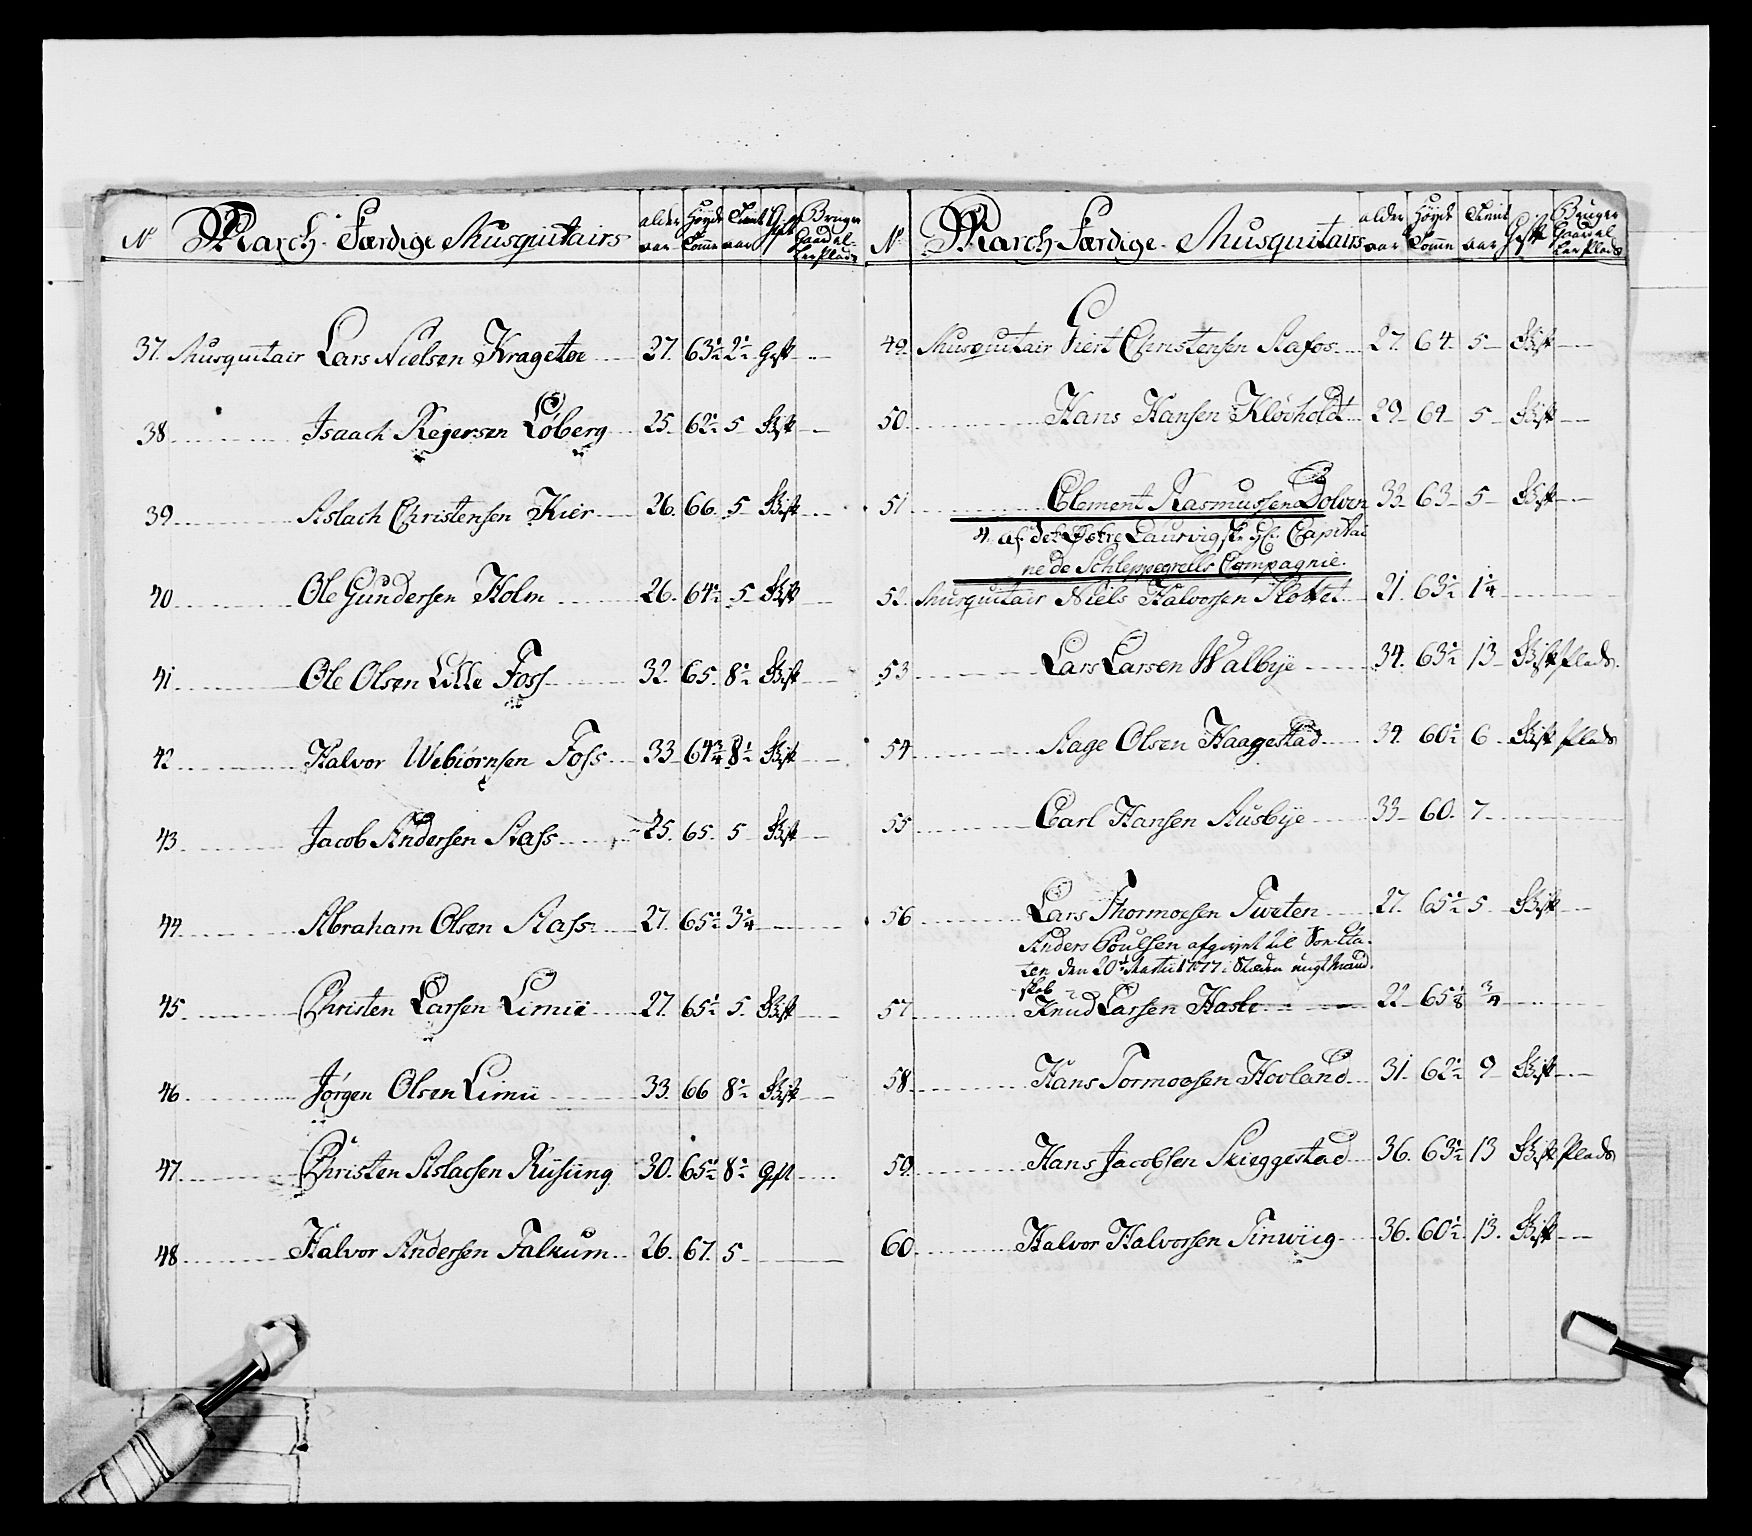 No March Færdige Musquitairs alder aar Höyde Tomme Tient aar Gift Bruger Gaard eller Plads
37. Musquitair Lars Nielsen Kragetoe 27. 63½ 2½ Gift
38 Isaach Rejersen Löberg 25. 62½ 5
39 Aslach Christensen Kier 26. 66. 5
40 Ole Gundersen Holm 26. 64½ 5
41 Ole Olsen Lille Foss 32. 65. 8½
42 Halvor Webiörnsen Foss 33 64¾ 8½
43 Jacob Andersen Aass 25. 65. 5
44 Abraham Olsen Aass 27. 65½ 3¼
45 Christen Larsen Limii 27. 65½ 5.
46 Jörgen Olsen Limii 33. 66 8½
47 Christen Aslacsen Riisiing 30. 65½ 8½ Gift
48 Halvor Andersen Falkum 26. 67. 5
No March Færdige Musquitairs alder aar Höyde Tomme Tient aar Gift Bruger Gaard eller Plads
49. Musquitair Giert Christensen Aafos 27. 64. 5
50. Hans Hansen Klövholdt 29. 64 5
51 Clement Rasmussen Dolven 33. 63 5
4 af det Laurvigske Capitai
ne de Schleppegrells Compagnie.
52. Musquitair Niels Halvorsen Klovet 21. 63½ 1¼
53 Lars Larsen Walbye 34. 63½ 13 Plads
54 Aage Olsen Haagestad 34. 60½ 6 Plads
55 Carl Hansen Ausbye 33 60. 7
56 Lars Thormoesen Tveten 27. 65½ 5
Anders Poulsen afgivet til
ten den 20de Martii 1777: Steden
skab
57 Knud Larsen Hasle 22 65⅛ ¾
58. Hans Tormoesen Hovland 31. 62½ 9
59. Hans Jacobsen Skieggestad 36. 63½ 13 Plads
60. Halvor Halvorsen Tinwiig 36. 60½ 13.